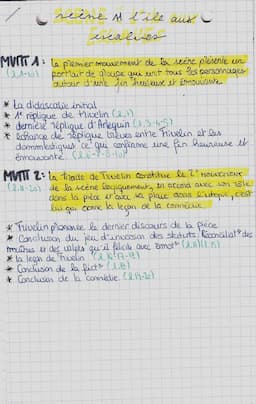 SCÈNE 11 l'île aux
esclaves
MVMT 1 : Le premier mouvement de la scène présente un
(l.1-10) portrait de groupe qui unit tous les personnages
autour d'une fin heureuse et émouvante.
* La didascalie initial
* 1° réplique de Trivelin (l.1)
* dernière réplique d'Arlequin (l.3-4-5)
* échange de réplique entre Trivelin et les
dommestiques ce qui confirme une fin heureuse et
émouvante. (l.6-7-8-10)
MVMT 2 : La tirade de Trivelin constitue le 2° mouvement
de la scène logiquement, en accord avec son rôle
dans la pièce et avec sa place dans l'utopie, c'est
lui qui donne la leçon de la comédie
* Trivelin prononce le dernier discours de la pièce
* Conclusion du jeu d'inversion des statuts, Réconciliat° des
maîtres et des valets qu'il félicite avec émot°
* la leçon de Trivelin
* Conclusion de la fict°
* Conclusion de la comédie